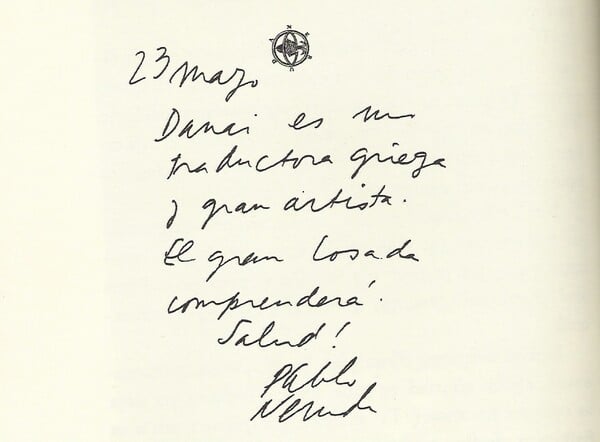 23 mayo
Danai es mi
traductora griega
y gran artista.
El gran Losada
comprenderá.
Salud!
Pablo
Neruda